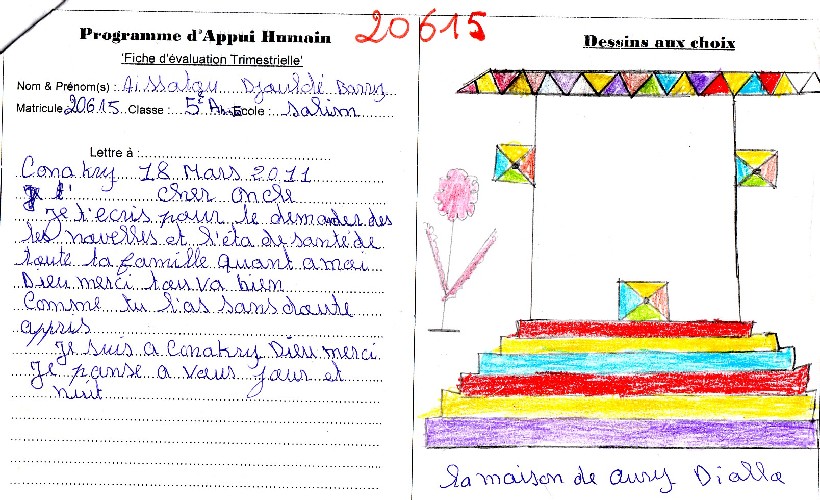 Programme d'Appui Humain
20615
'Fiche d'évaluation Trimestrielle'
Nom & Prénom(s) : Aissatou Djouldé Barry
Matricule 20615 Classe : 5e A École : Salim
Lettre à :
Conakry 18 Mars 2011
Cher oncle
Je t'ecris pour te demander des
tes novelles et l'eta de santé de
toute ta famille quant a moi
Dieu merci tou va bien
Comme tu l'as sans doute
appris
Je suis a Conakry Dieu merci
Je panse a vous jour et
nuit
Dessins aux choix
la maison de oury Diallo